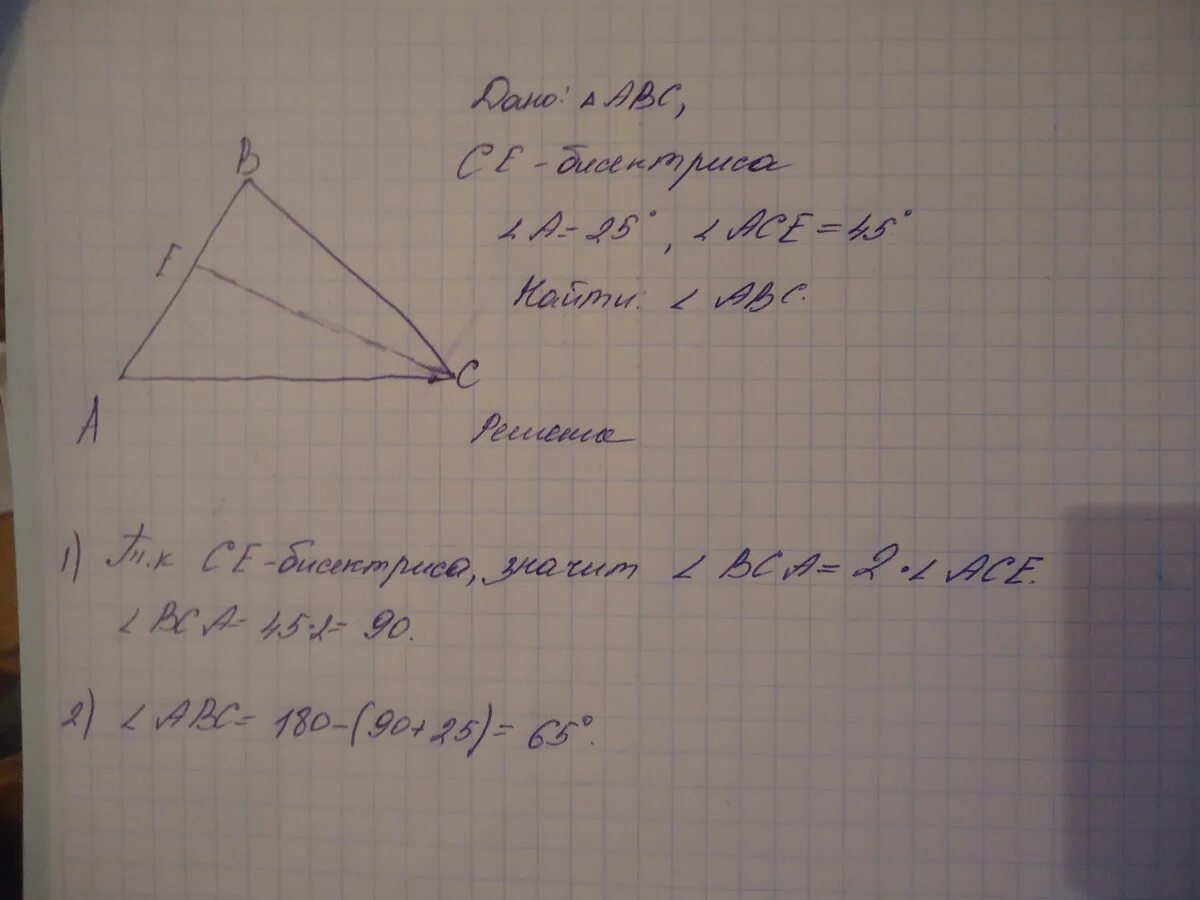 Дано: △ ABC,
CE - бисектриса
∠ A = 25°, ∠ ACE = 45°
Найти: ∠ ABC.
B
E
A
C
Решение
1) Т.к CE - бисектриса, значит ∠ BCA = 2 · ∠ ACE.
∠ BCA = 45·2 = 90.
2) ∠ ABC = 180 - (90 + 25) = 65°.